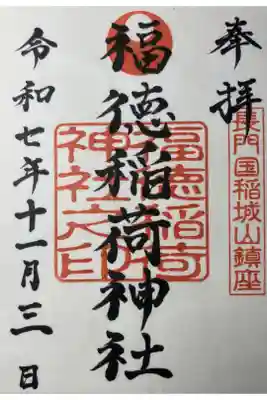 奉拝
長門国稲城山鎮座
福徳稲荷神社
福徳稲荷神社之印
令和七年十一月三日